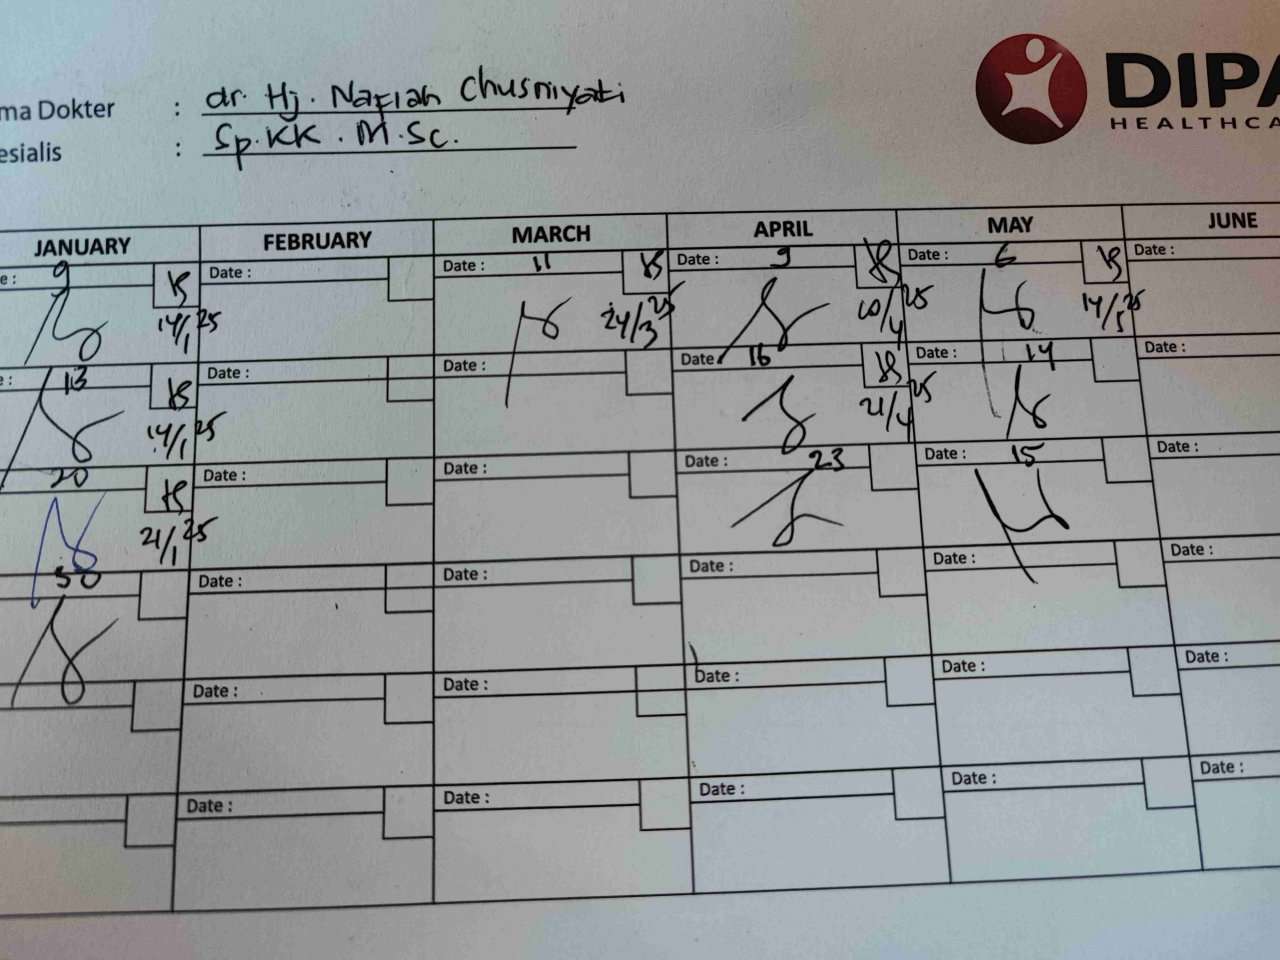 ma Dokter : dr. Hj. Nafiah Chusniyati
esialis : Sp.KK. M.Sc.
DIPA
HEALTHCA
JANUARY FEBRUARY MARCH APRIL MAY JUNE
e : 9 Date : Date : 11 Date : 9 Date : 6 Date :
14/1 25 24/3 25 10/4 25 14/5 25
e : 13 Date : Date : 16 Date : 14 Date :
14/1 25 21/4 25
20 Date : Date : Date : 23 Date : 15 Date :
21/1 25
30 Date : Date : Date : Date : Date :
Date : Date : Date : Date : Date :
Date : Date : Date : Date : Date :